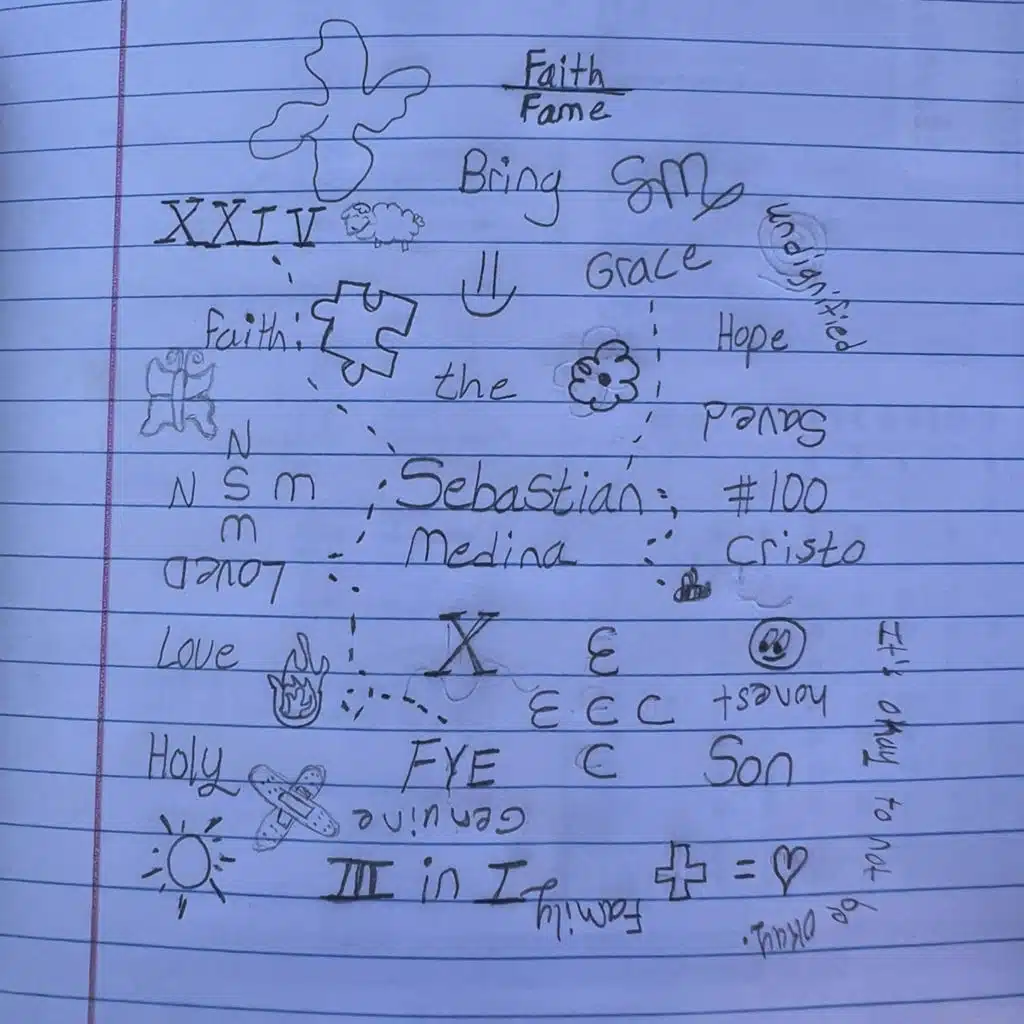 Faith
Fame
Bring SM
XXIV
undignified
Grace
Faith
Hope
the
Saved
N
N S m
m
Sebastian
#100
Medina
Cristo
LoveD
Love
X
ε
ε ε C
honest
It's okay to not be okay.
Holy
FYE
C
Son
Genuine
III in I
Family
=